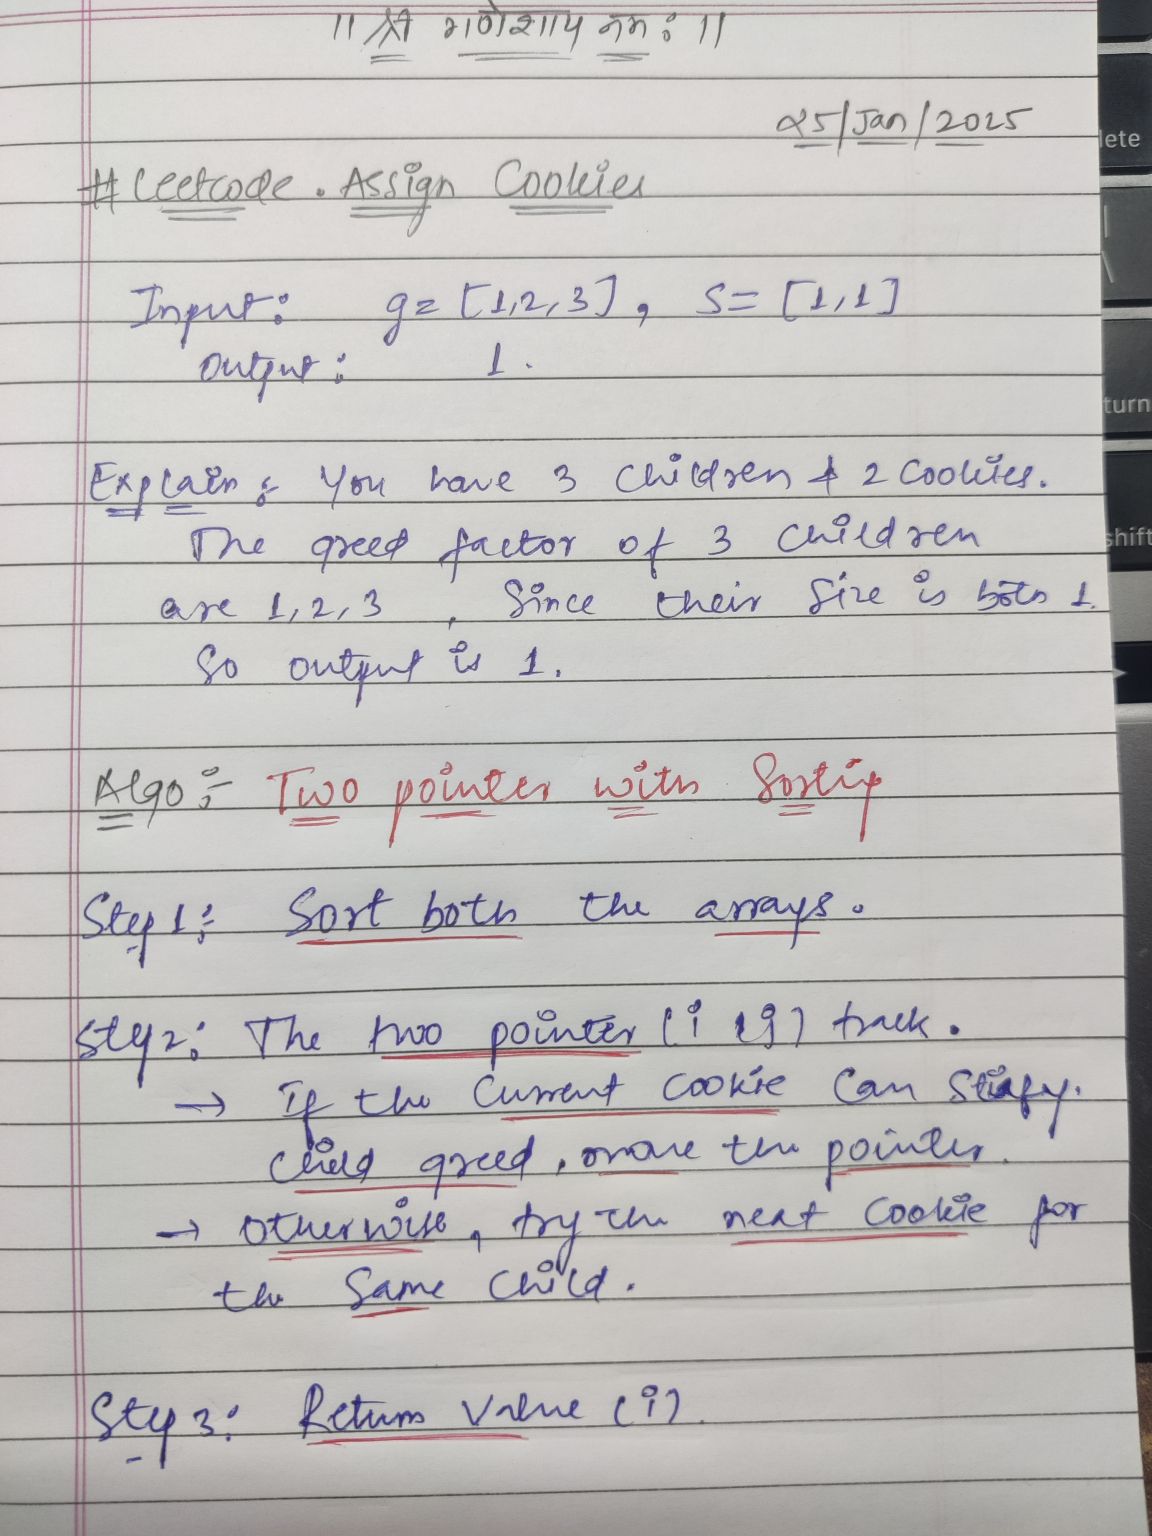 ॥ श्री गणेशाय नमः ॥
25/Jan/2025
# Leetcode . Assign Cookies
Input: g= [1,2,3], S= [1,1]
Output: 1.
Explain: You have 3 children & 2 Cookies.
The greed factor of 3 children
are 1,2,3 , Since their Size is both 1.
So output is 1.
Algo:- Two pointer with Sorting
Step 1: Sort both the arrays.
Step 2: The two pointer (i & j) track.
→ If the Current Cookie Can Stisfy.
child greed, move the pointer.
→ otherwise, try the next Cookie for
the Same Child.
Step 3: Return Value (i).
lete
turn
shift